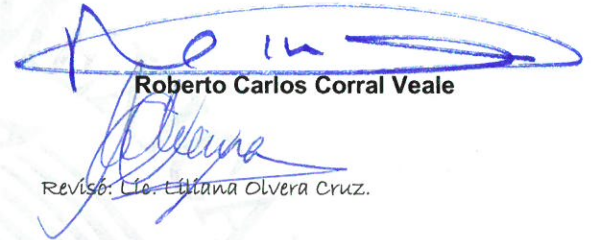 Roberto Carlos Corral Veale
Revisó: Lic. Liliana Olvera Cruz.